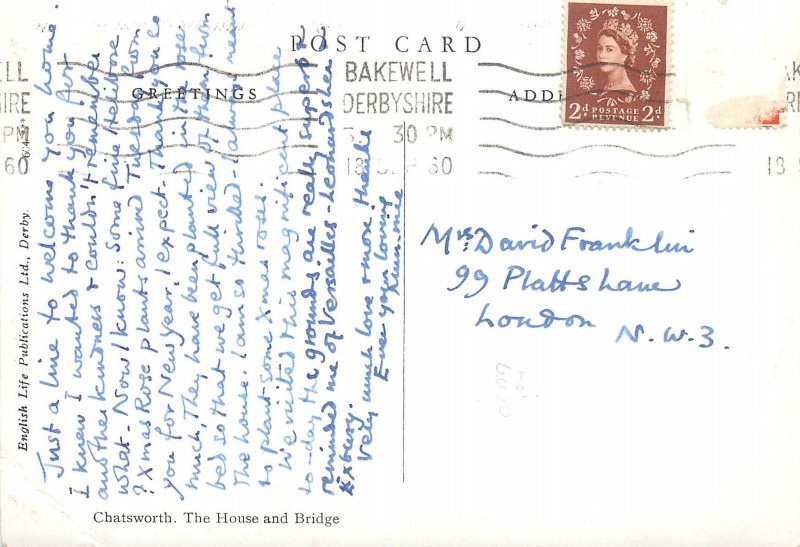 POST CARD
GREETINGS
BAKEWELL
DERBYSHIRE
30 PM
18 SEP 60
ADD
2d POSTAGE REVENUE 2d
Just a line to welcome you home.
I knew I wanted to thank you for
another kindness & couldn't remember
what - Now I know: Some fine Hellibore
? Xmas Rose plants arrived Tuesday from
you for New Year. I expect. Thank you so
much, They have been planted in the rose
bed so that we get full view of them from
the house. I am so thrilled - I always meant
to plant some Xmas roses.
We visited this magnificent place
to-day, the grounds are really superb &
reminded me of Versailles - Leonardslee &
Exbury.
Very much love & more thanks
Ever your loving
Mrs. David Franklin
99 Platts Lane
London N.W.3.
English Life Publications Ltd., Derby.
Chatsworth. The House and Bridge